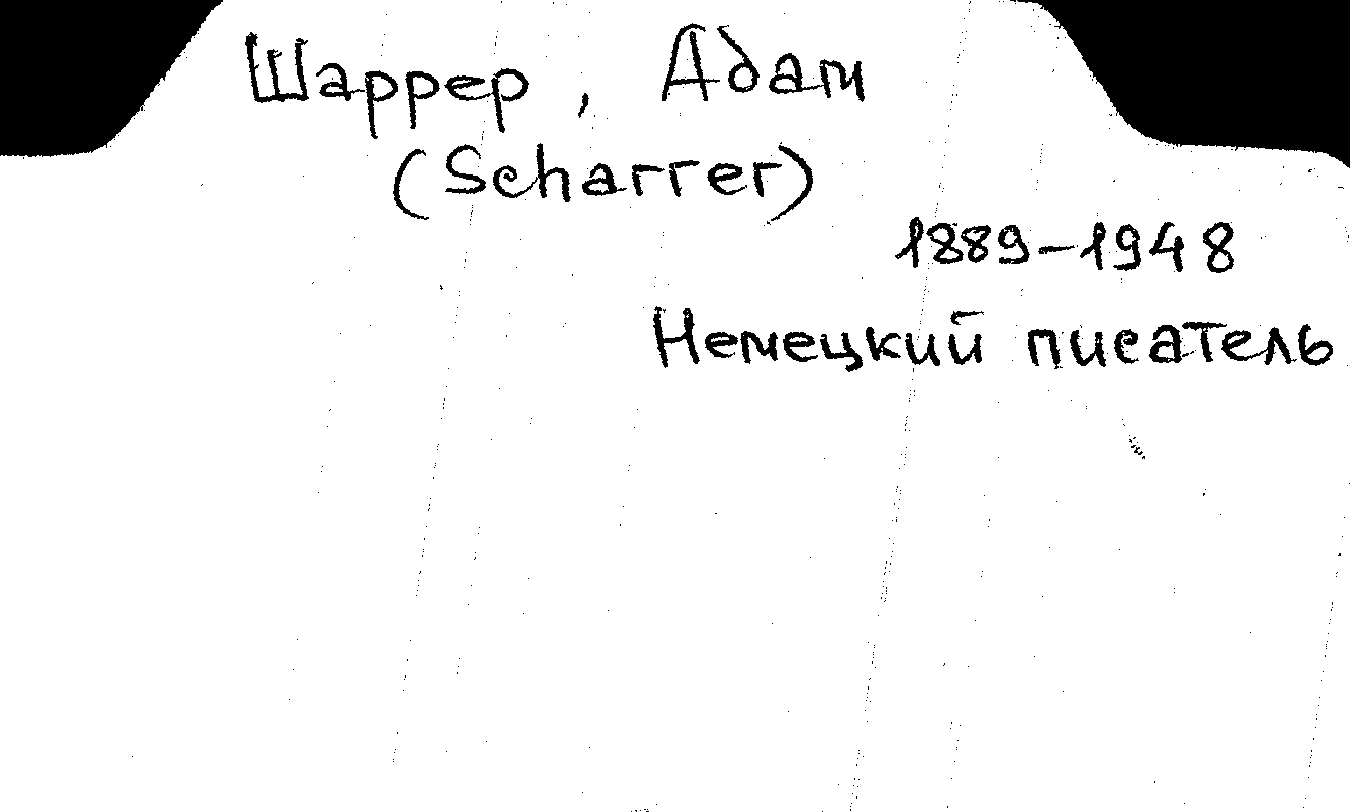 Шаррер, Адам
(Scharrer)
1889-1948
Немецкий писатель